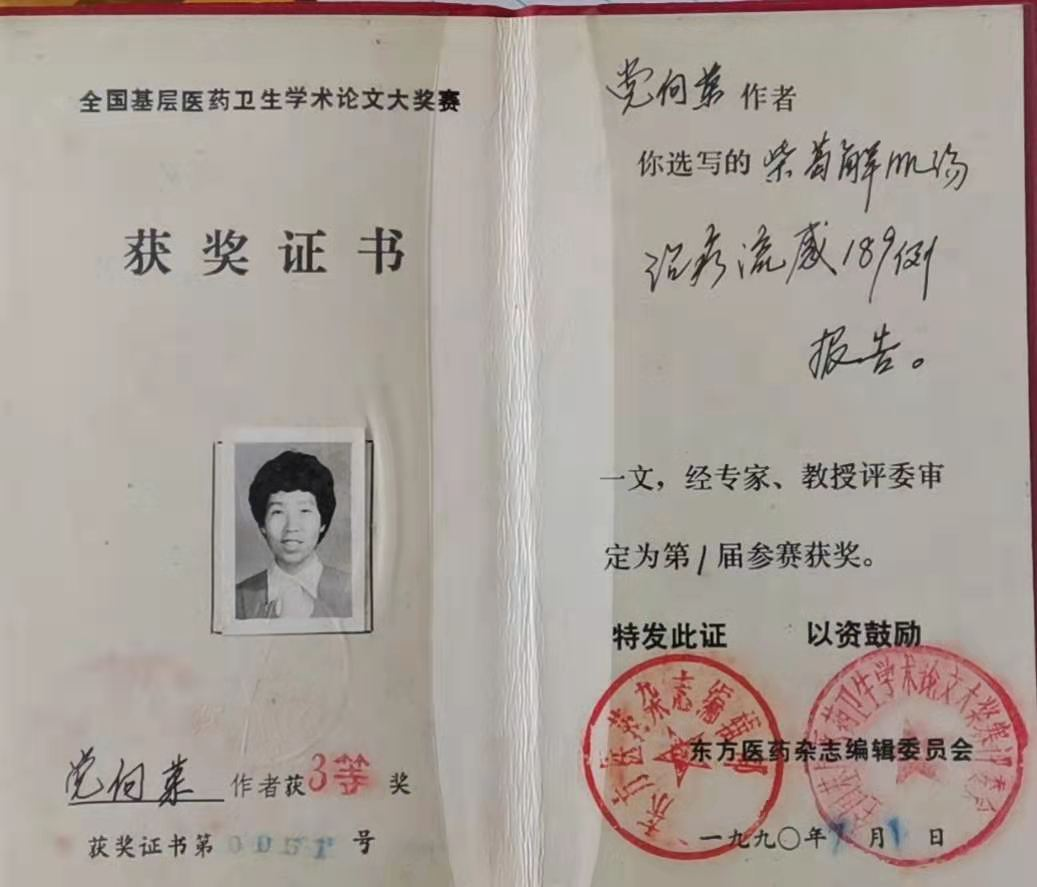 全国基层医药卫生学术论文大奖赛
获奖证书
作者获3等奖
获奖证书第005号
作者
你选写的柴葛解肌汤
治疗流感189例
报告。
一文，经专家、教授评委审
定为第1届参赛获奖。
特发此证 以资鼓励
东方医药杂志编辑委员会
一九九〇年 月1日
东方医药杂志编辑